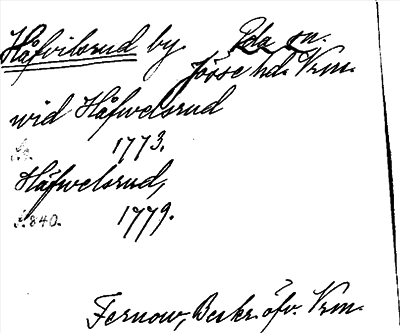 Håfvilsrud by Eda sn.
Jösse hd. Vrm.
wid Håfwelsrud
1773.
Håfwelsrud,
s. 840. 1779.
Fernow, Beskr. öfv. Vrm.